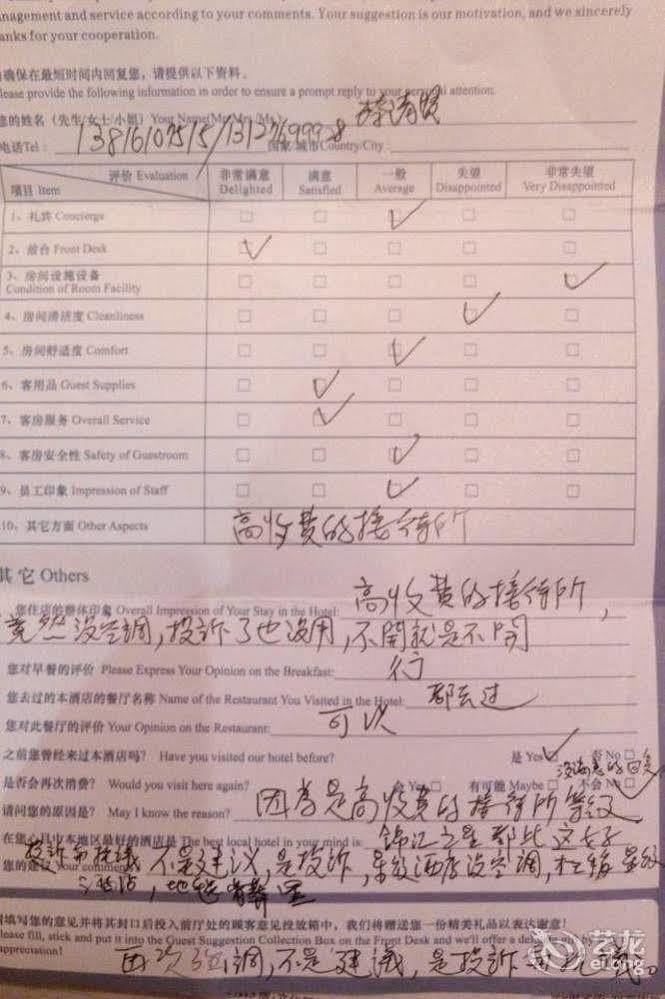 management and service according to your comments. Your suggestion is our motivation, and we sincerely
thanks for your cooperation.
确保在最短时间内回复您，请提供以下资料。
Please provide the following information in order to ensure a prompt reply to your personal attention:
您的姓名（先生/女士/小姐）Your Name(Mr/Mrs./Ms)
电话Tel： 13816107515/13127699928 国家/城市Country/City
项目 Item 评价 Evaluation 非常满意 Delighted 满意 Satisfied 一般 Average 失望 Disappointed 非常失望 Very Disappointed
1、礼宾 Concierge
2、前台 Front Desk
3、房间设施设备
Condition of Room Facility
4、房间清洁度 Cleanliness
5、房间舒适度 Comfort
6、客用品 Guest Supplies
7、客房服务 Overall Service
8、客房安全性 Safety of Guestroom
9、员工印象 Impression of Staff
10、其它方面 Other Aspects 高收费的接待所
其它 Others
您住店的整体印象 Overall Impression of Your Stay in the Hotel: 高收费的接待所，
竟然没空调，投诉了也没用，不開就是不開
您对早餐的评价 Please Express Your Opinion on the Breakfast: 行
您去过的本酒店的餐厅名称 Name of the Restaurant You Visited in the Hotel: 都去过
您对此餐厅的评价 Your Opinion on the Restaurant: 可以
之前您曾经来过本酒店吗？ Have you visited our hotel before? 是 Yes 否 No
是否会再次消费？ Would you visit here again? 会 Yes 有可能 Maybe 不会 No
请问您的原因是？ May I know the reason? 因为是高收费的接待所等级
在您心目中本地区最好的酒店是 The best local hotel in your mind is: 锦江之星都比这好
您的建议 Your comments 不是建议，是投诉，星级酒店没空调，
请填写您的意见并将其封口后投入前厅处的顾客意见投放箱中，我们将赠送您一份精美礼品以表达谢意！
Please fill, stick and put it into the Guest Suggestion Collection Box on the Front Desk and we'll offer a
appreciation!
再次强调，不是建議，是投訴
艺龙
elong.